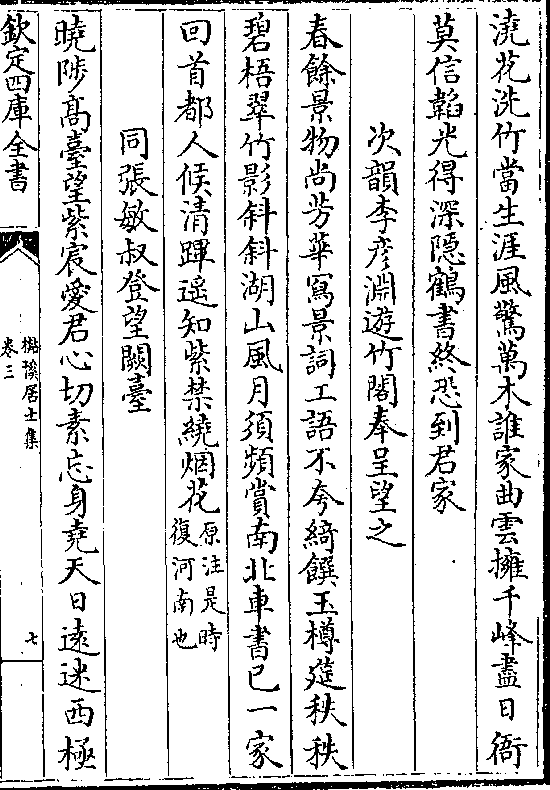 澆花洗竹當生涯風驚萬木誰家曲雲擁千峰盡日衙
莫信韜光得深隠鶴書終恐到君家
次韻李彦淵遊竹閣奉呈望之
春餘景物尚芳華寫景詞工語不夸綺饌玉樽莚秩秩
碧梧翠竹影斜斜湖山風月須頻賞南北車書已一家
回首都人候清蹕遥知紫禁繞烟花
原注是時
復河南也
同張敏叔登望闕臺
曉陟髙臺望紫宸愛君心切素忘身堯天日逺迷西極
欽定四庫全書
居士集
卷三
七